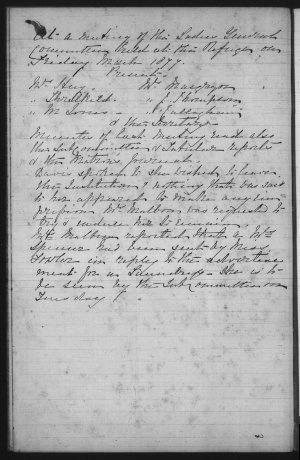 At a meeting of the Ladies General
Committee held at the Refuge on
Tuesday March 1877.
Present
Mrs Hay. Mrs Musgrave
" Threlkeld " J. Thompson
" W Jones " Fullingham
& the Secretary
Minutes of last Meeting read also
the Sub Committee & Visitors reports
& the Matron's Journal.
Davis spoke to she wished to leave
the Institution & nothing that was said
to her appeared to make any im
pression Mrs Muldoon was requested to
try & induce her to remain
Mrs Muldoon reported that a Mrs
Spencer had been sent by Miss
Foster in reply to the advertise
ment for a Laundress She is to
be seen by the Sub Committee on
Tuesday